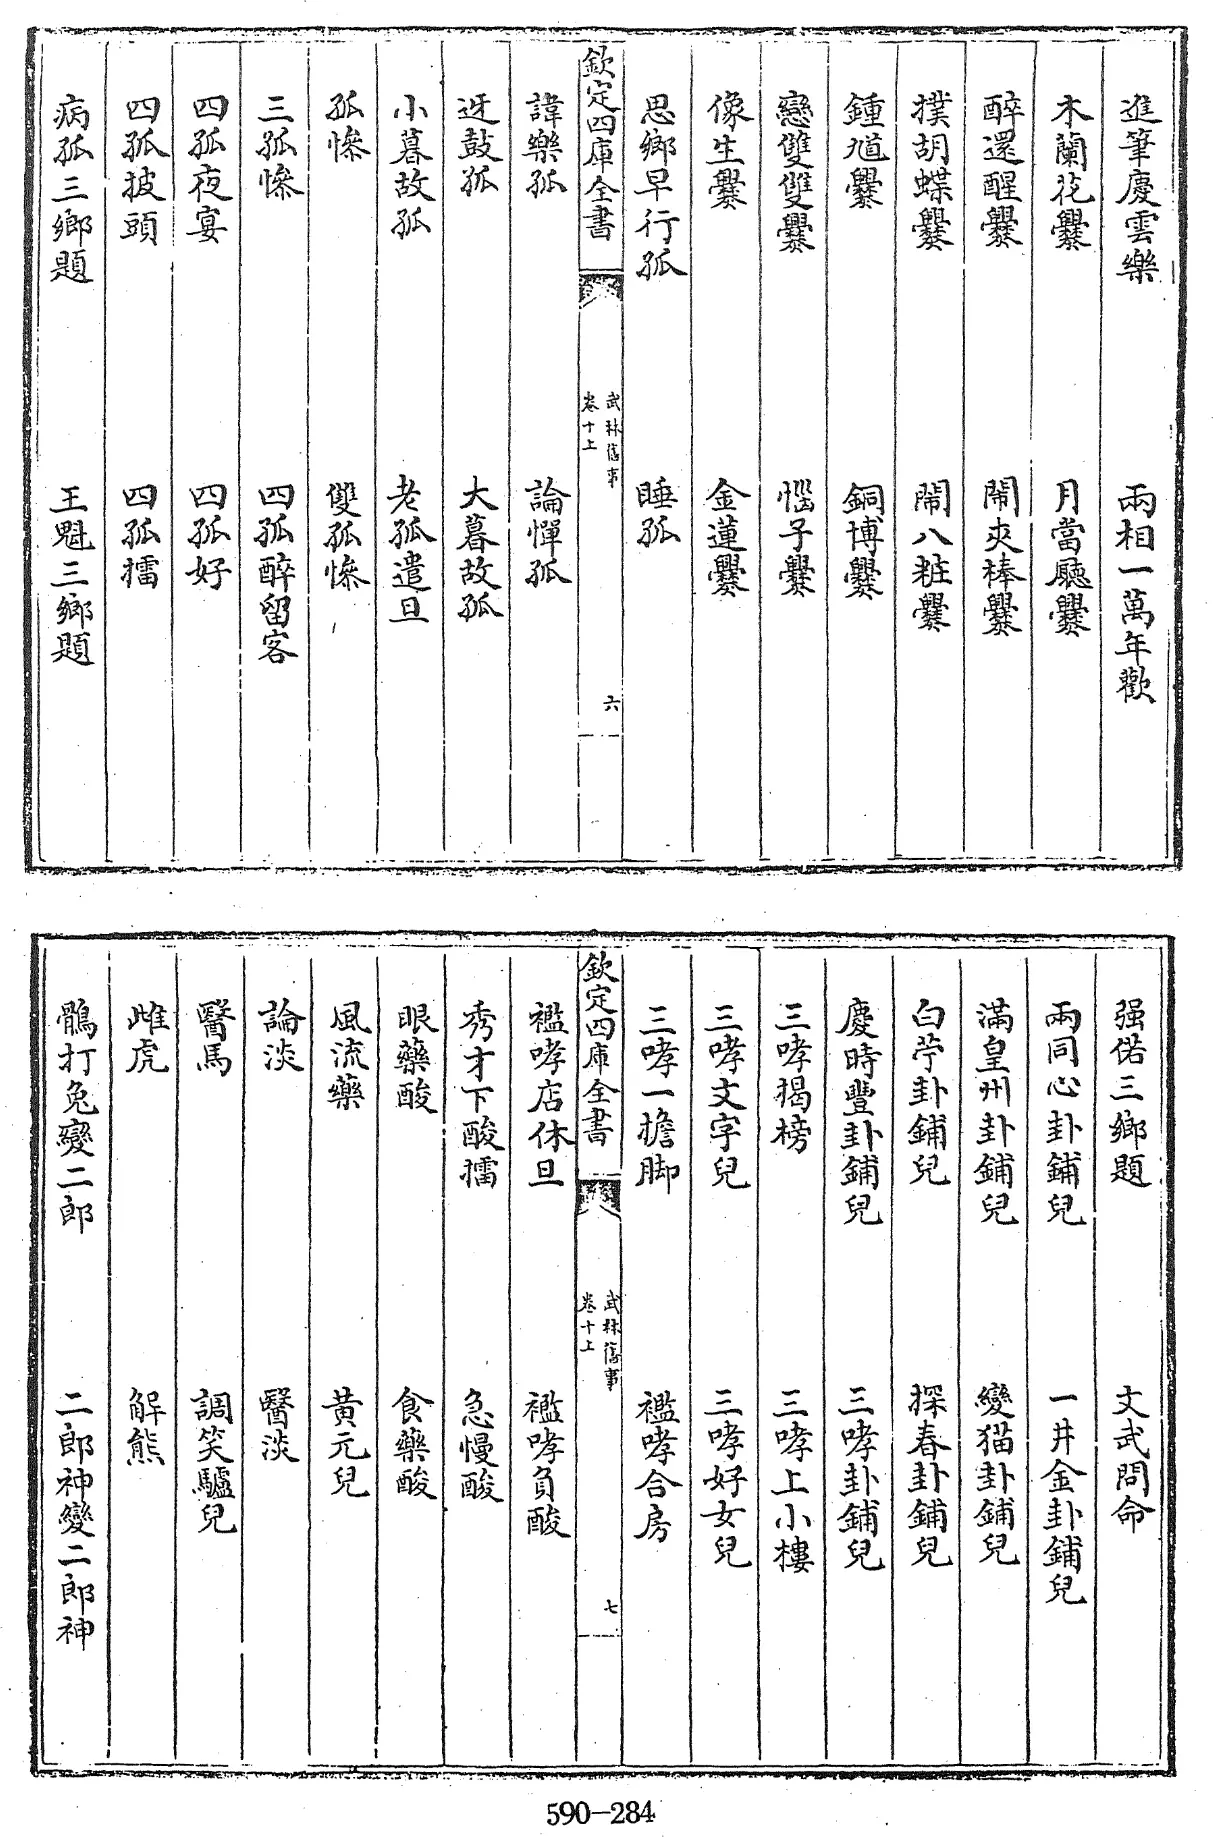 進筆慶雲樂　兩相一萬年歡
木蘭花爨　月當廳爨
醉還醒爨　鬧夾棒爨
撲胡蝶爨　鬧八粧爨
鍾馗爨　銅博爨
戀雙雙爨　惱子爨
像生爨　金蓮爨
思鄉早行孤　睡孤
欽定四庫全書　武林舊事　卷十上　六
諱樂孤　論憚孤
迓鼓孤　大暮故孤
小暮故孤　老孤遣旦
孤慘　雙孤慘
三孤慘　四孤醉留客
四孤夜宴　四孤好
四孤披頭　四孤擂
病孤三鄉題　王魁三鄉題
强偌三鄉題　文武問命
兩同心卦鋪兒　一井金卦鋪兒
滿皇州卦鋪兒　變猫卦鋪兒
白苧卦鋪兒　探春卦鋪兒
慶時豐卦鋪兒　三哮卦鋪兒
三哮揭榜　三哮上小樓
三哮文字兒　三哮好女兒
三哮一檐脚　襤哮合房
欽定四庫全書　武林舊事　卷十上　七
襤哮店休旦　襤哮負酸
秀才下酸擂　急慢酸
眼藥酸　食藥酸
風流藥　黃元兒
論淡　醫淡
醫馬　調笑驢兒
雌虎　解熊
鶻打兔變二郎　二郎神變二郎神
590-284